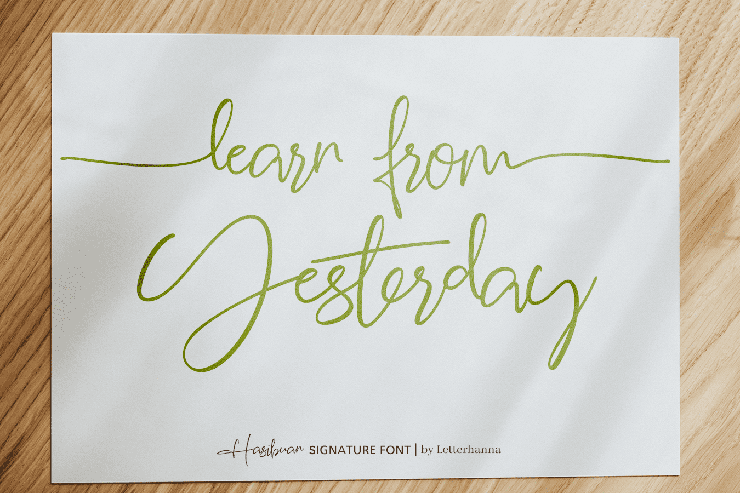 learn from
Yesterday
Hasibuan SIGNATURE FONT | by Letterhanna